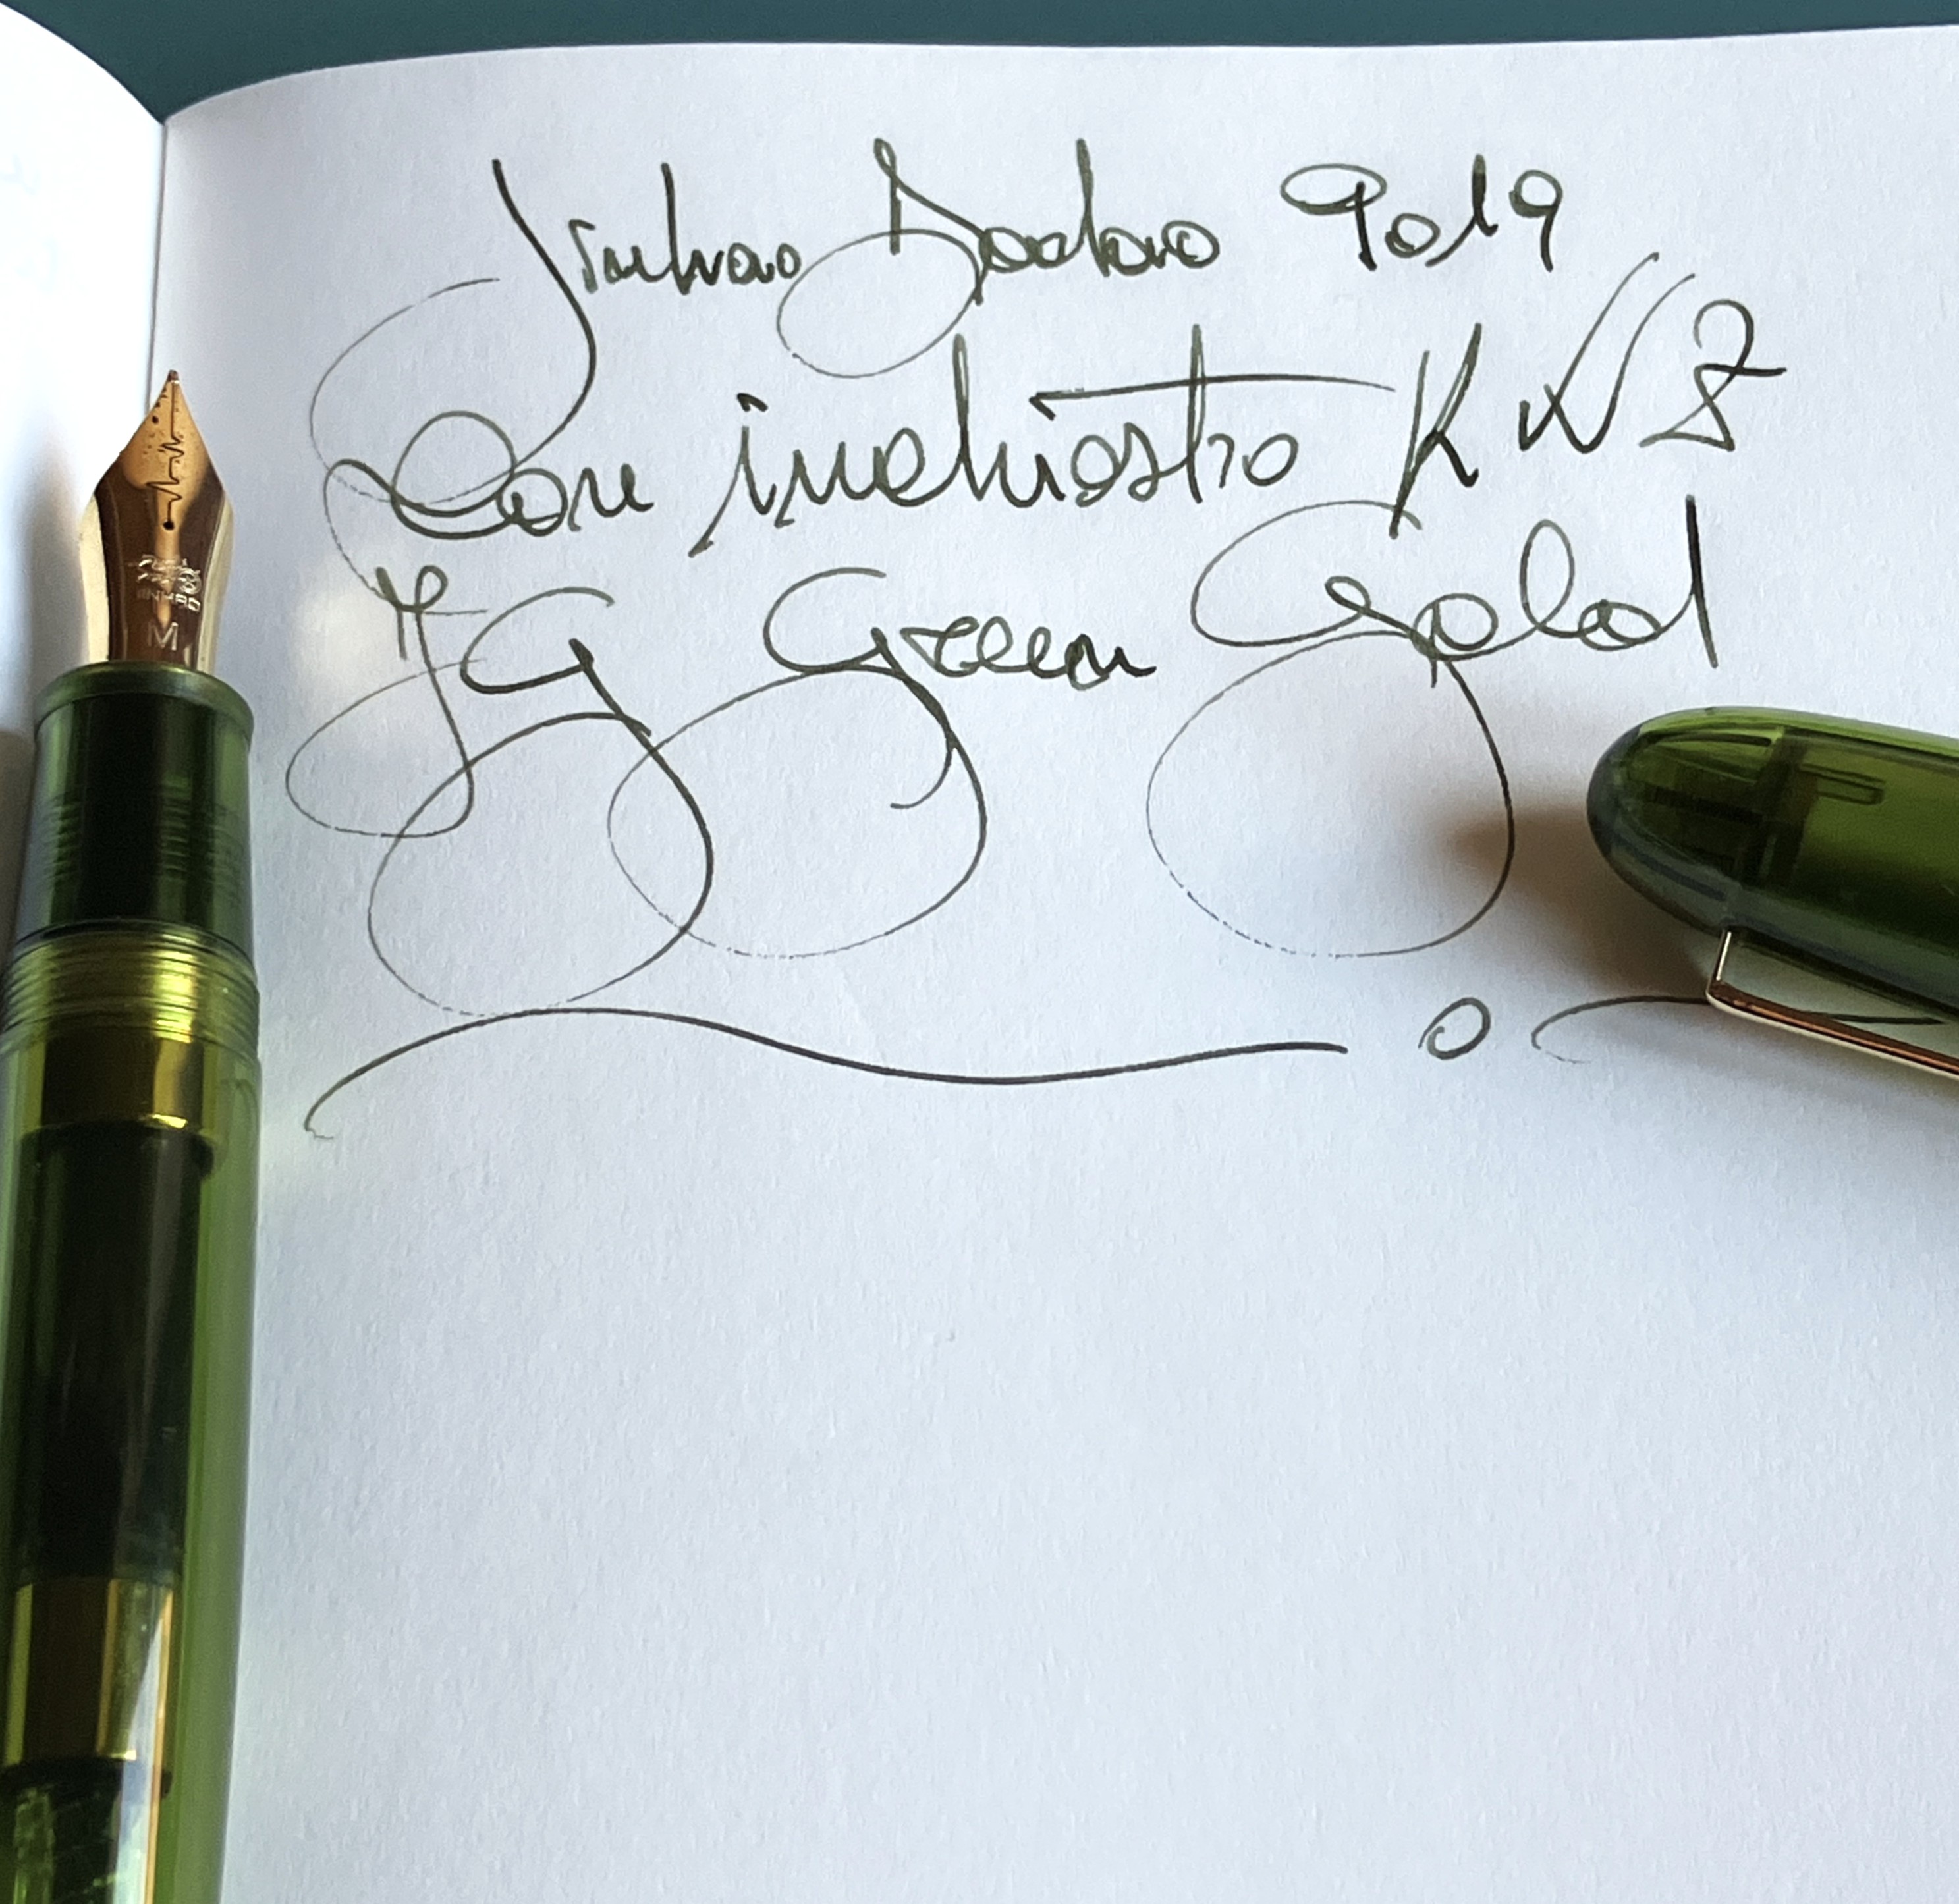 Jinhao Dadao 9019
Con inchiostro KWZ
IG Green Gold
JINHAO
M